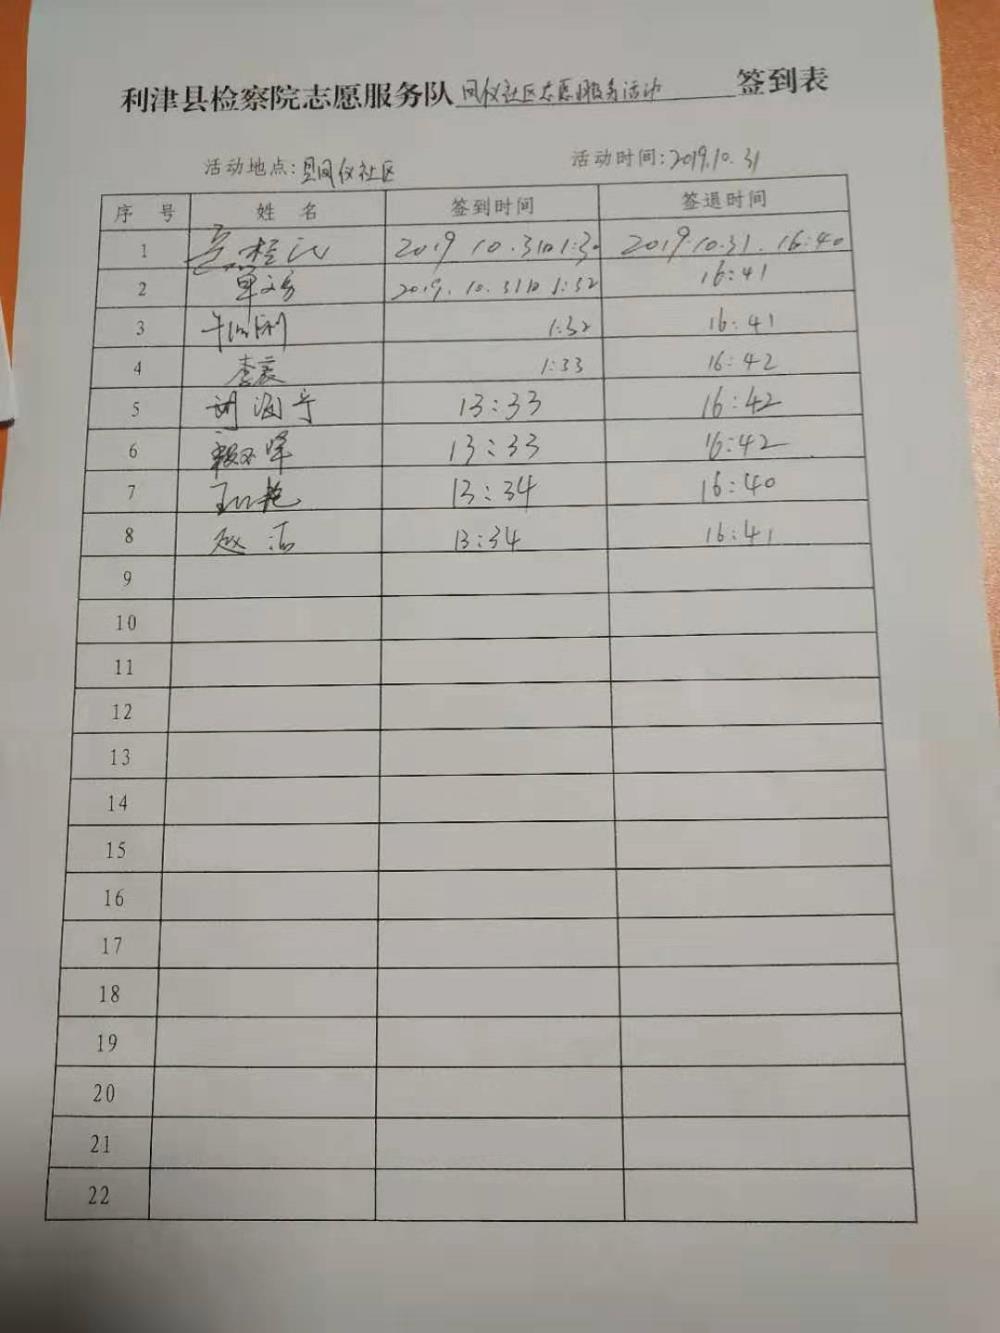 利津县检察院志愿服务队 凤仪社区志愿服务活动 签到表
活动地点:县凤仪社区 活动时间:2019.10.31
序 号 姓 名 签到时间 签退时间
1 2019 10.31日1:30 2019.10.31. 16:40
2 2019.10.31日1:32 16:41
3 1:32 16:41
4 1:33 16:42
5 13:33 16:42
6 13:33 16:42
7 13:34 16:40
8 赵洁 13:34 16:41
9
10
11
12
13
14
15
16
17
18
19
20
21
22